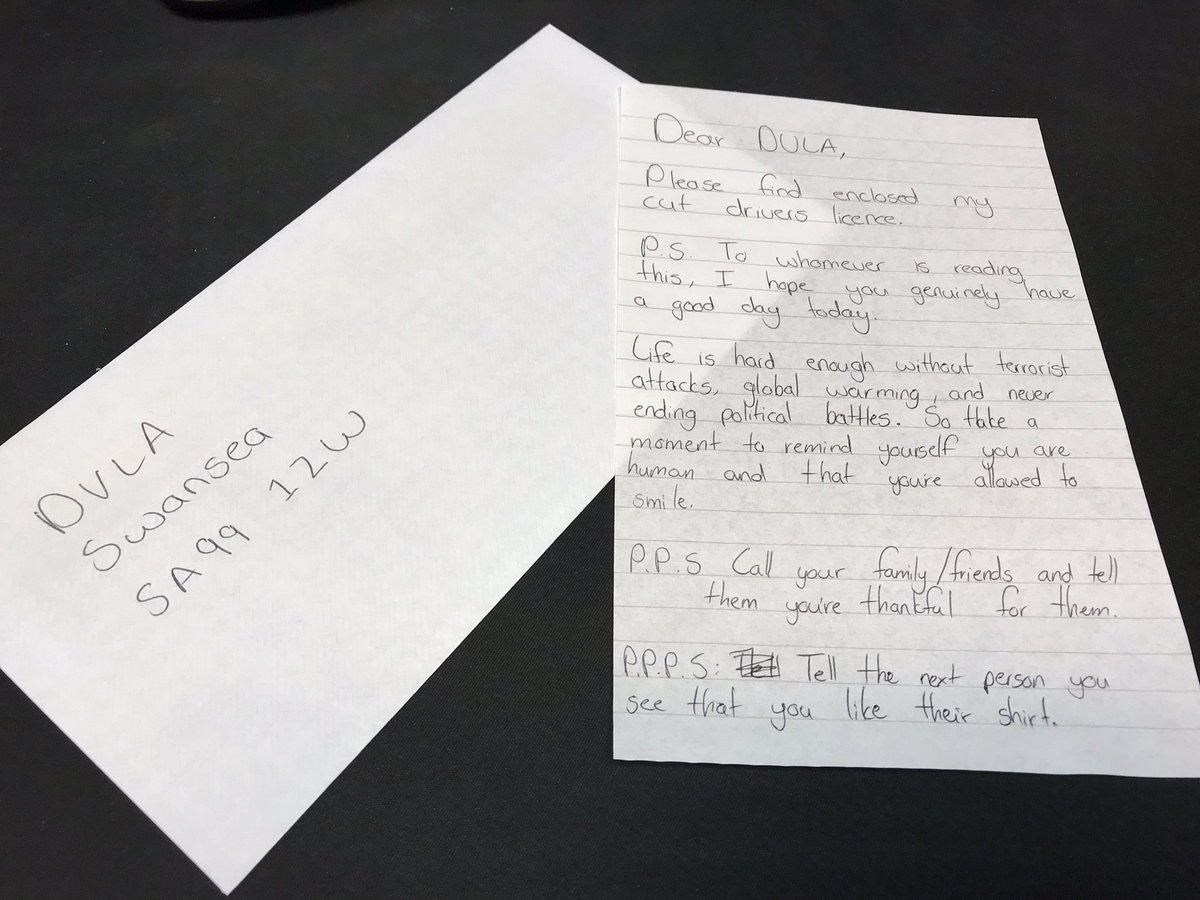 DVLA
Swansea
SA99 1ZW
Dear DVLA,
Please find enclosed my
cut drivers licence.
P.S. To whomever is reading
this, I hope you genuinely have
a good day today.
Life is hard enough without terrorist
attacks, global warming, and never
ending political battles. So take a
moment to remind yourself you are
human and that you're allowed to
smile.
P.P.S Call your family/friends and tell
them you're thankful for them.
P.P.P.S: Tell the next person you
see that you like their shirt.